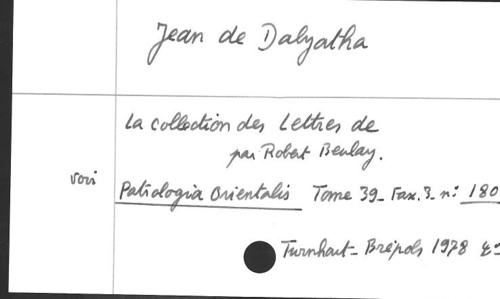 Jean de Dalyatha
La collection des Lettres de
par Robert Beulay.
voir Patrologia Orientalis Tome 39_ Fax. 3_ n: 180
Turnhout_ Brépols 1978